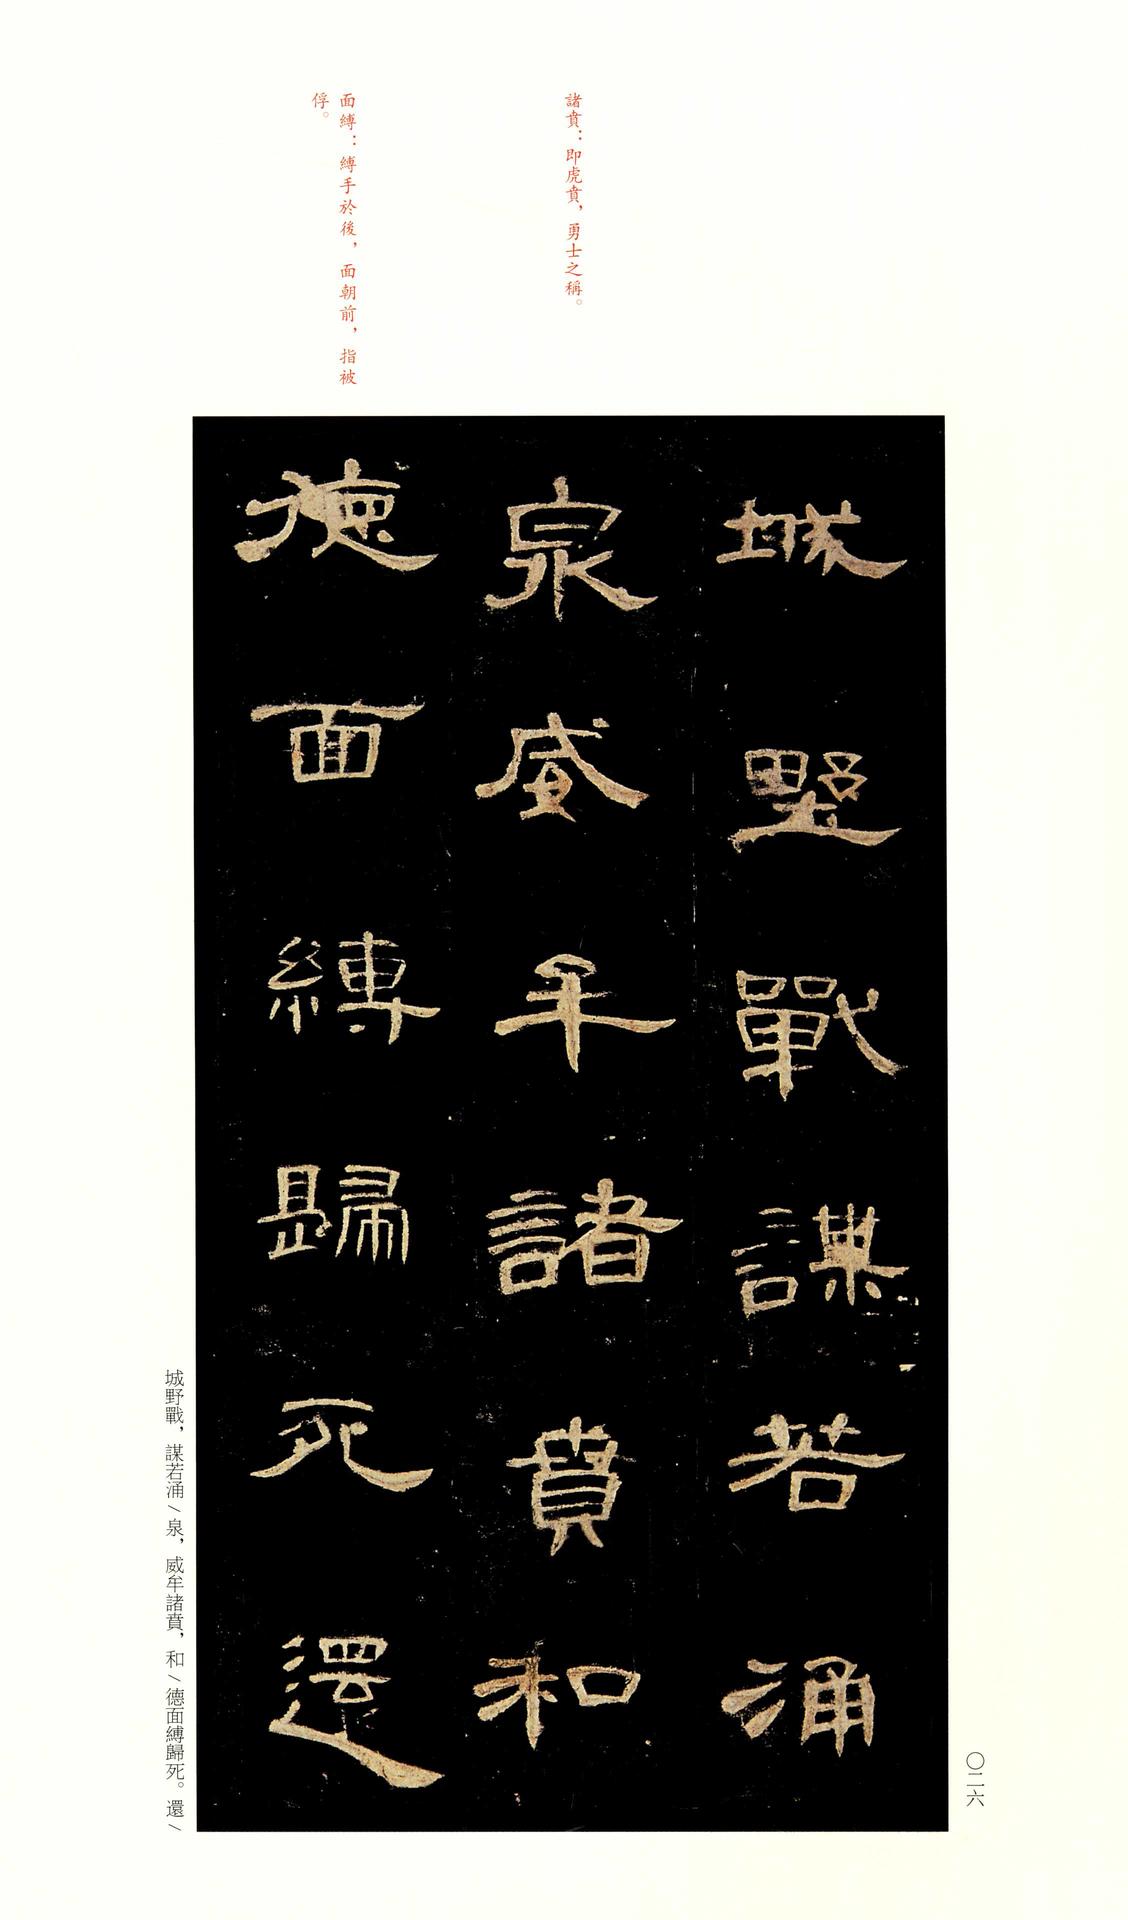 諸賁：即虎賁，勇士之稱。
面縛：縛手於後，面朝前，指被
俘。
城野戰謀若涌
泉威牟諸賁和
德面縛歸死還
城野戰，謀若涌／泉，威牟諸賁，和／德面縛歸死。還／
〇二六